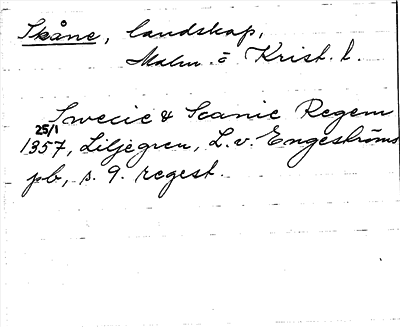 Skåne, landskap,
Malm. o Krist. l.
Swecie & Scanie Regem
25/1
1357, Liljegren, L. v. Engeströms
pb, s. 9. regest.